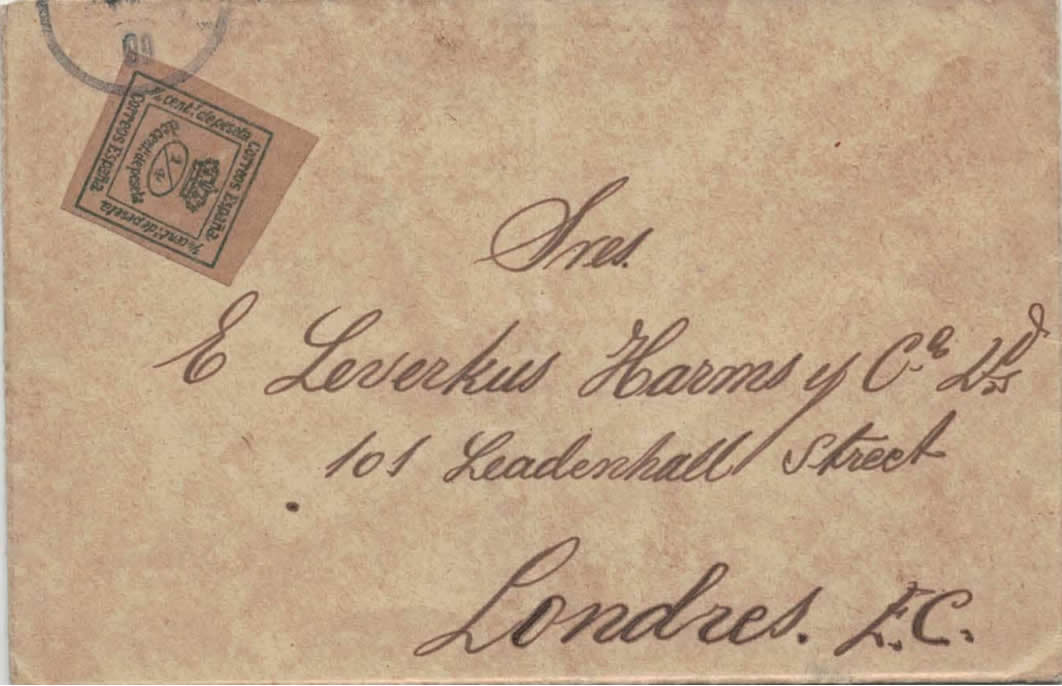 00
¼ cent.º de peseta
Correos España
Correos España.
¼ cent.º de peseta.
de cent.º de peseta
1/4
Sres.
E Leverkus Harms y Cª Lds
101 Leadenhall Street
Londres. E.C.